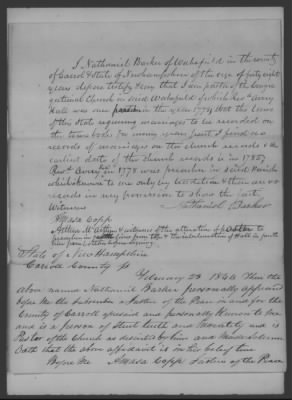 I Nathaniel Barker of Wakefield in the county
of Carrol & State of Newhampshire of the age of sixty eight
years depose testify & say that I am pastor of the congre
gational church in said Wakefield of which Revd Avery
Hall was one in the year 1779 that the laws
of this State requiring marriages to be recorded on
the town books for many years past I find no
records of marriages on the church records & the
earliest date of the church records is in 1785
Revd Avery in 1778 was preacher in said Parish
which is known to me only by tradition & there are no
records in my possession to show the date
Witness Nathaniel Barker
Amasa Copp
State of New Hampshire
Carroll County ss
February 23 1860 Then the
above named Nathaniel Barker personally appeared
before me the Subscriber a Justice of the Peace in and for the
County of Carroll aforesaid and personally known to me
and is a person of Strict truth and Morality and is
Pastor of the Church as described by him and made Solemn
Oath that the above affidavit is in his belief true
Before Me Amasa Copp Justice of the Peace